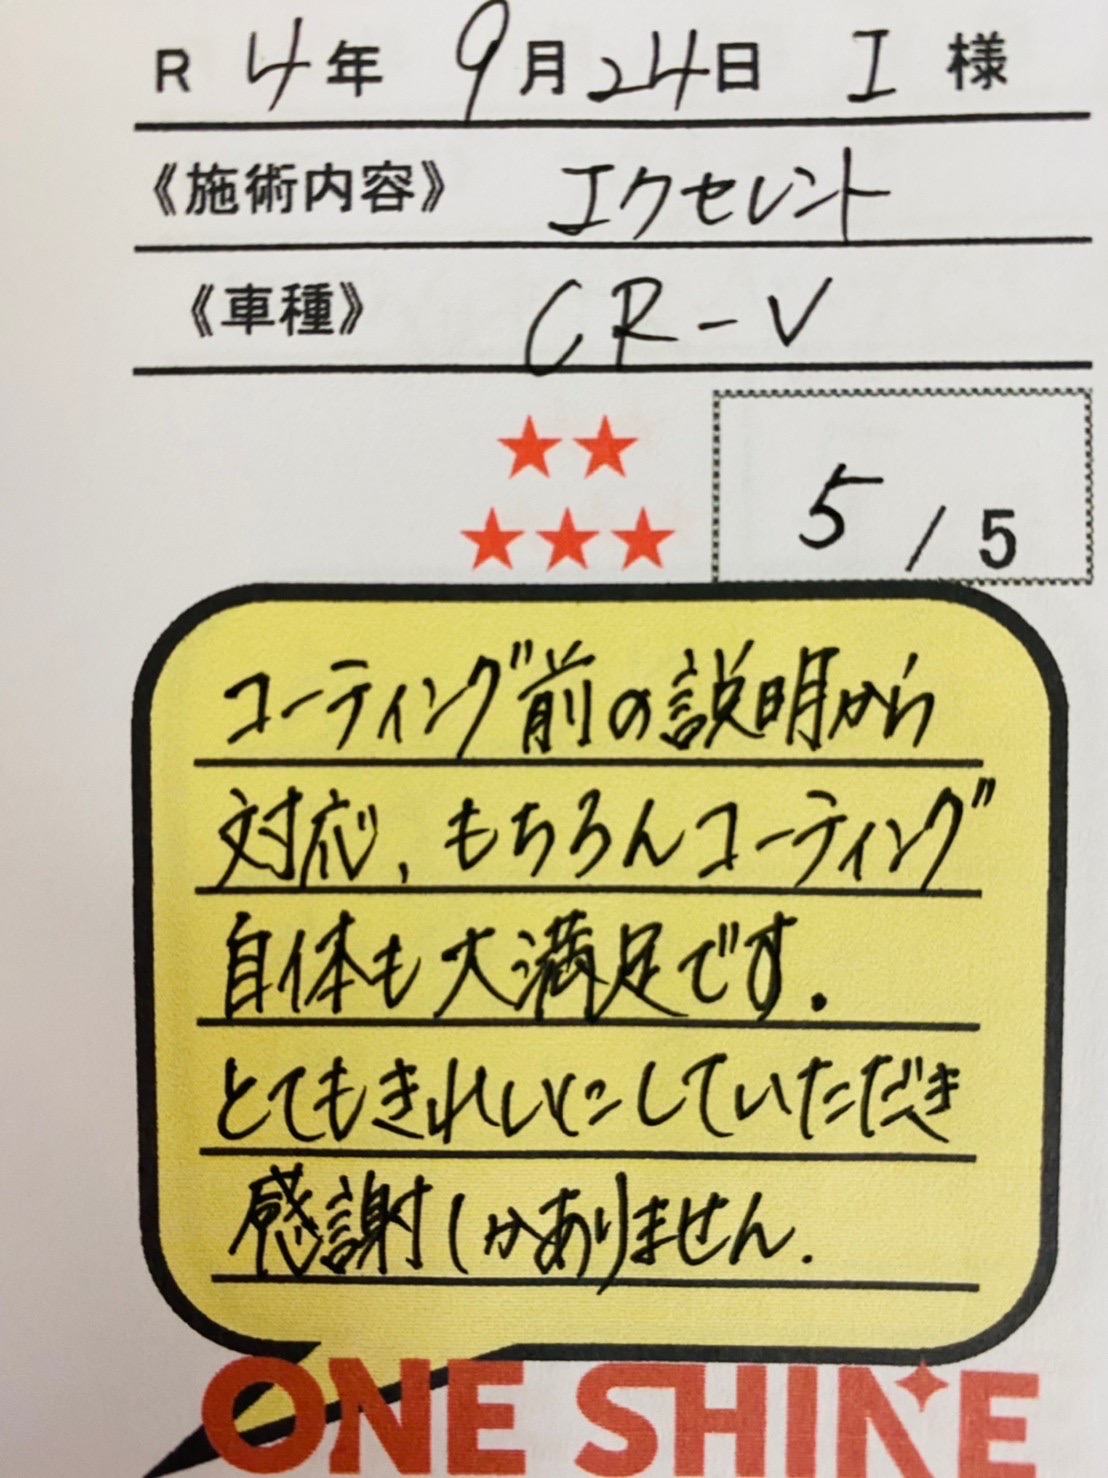 R 4年 9月24日 I 様
《施術内容》 エクセレント
《車種》 CR-V
★★
★★★ 5/5
コーティング前の説明から
対応、もちろんコーティング
自体も大満足です.
とてもきれいにしていただき
感謝しかありません.
ONE SHINE